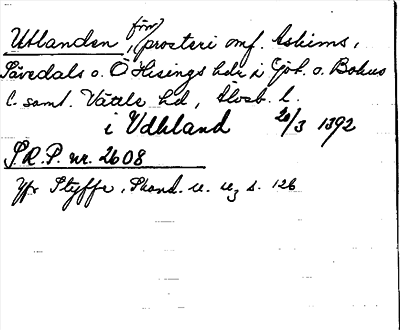 Utlanden, förr prosteri omf. Askims,
Sävedals o. Ö Hisings hdr i Göt. o. Bohus
l. samt. Vättle hd, Älvsb. l.
i Vdhland 20/3 1392
S.R.P. nr. 2608
Jfr Styffe, Skand. u. u, s. 126